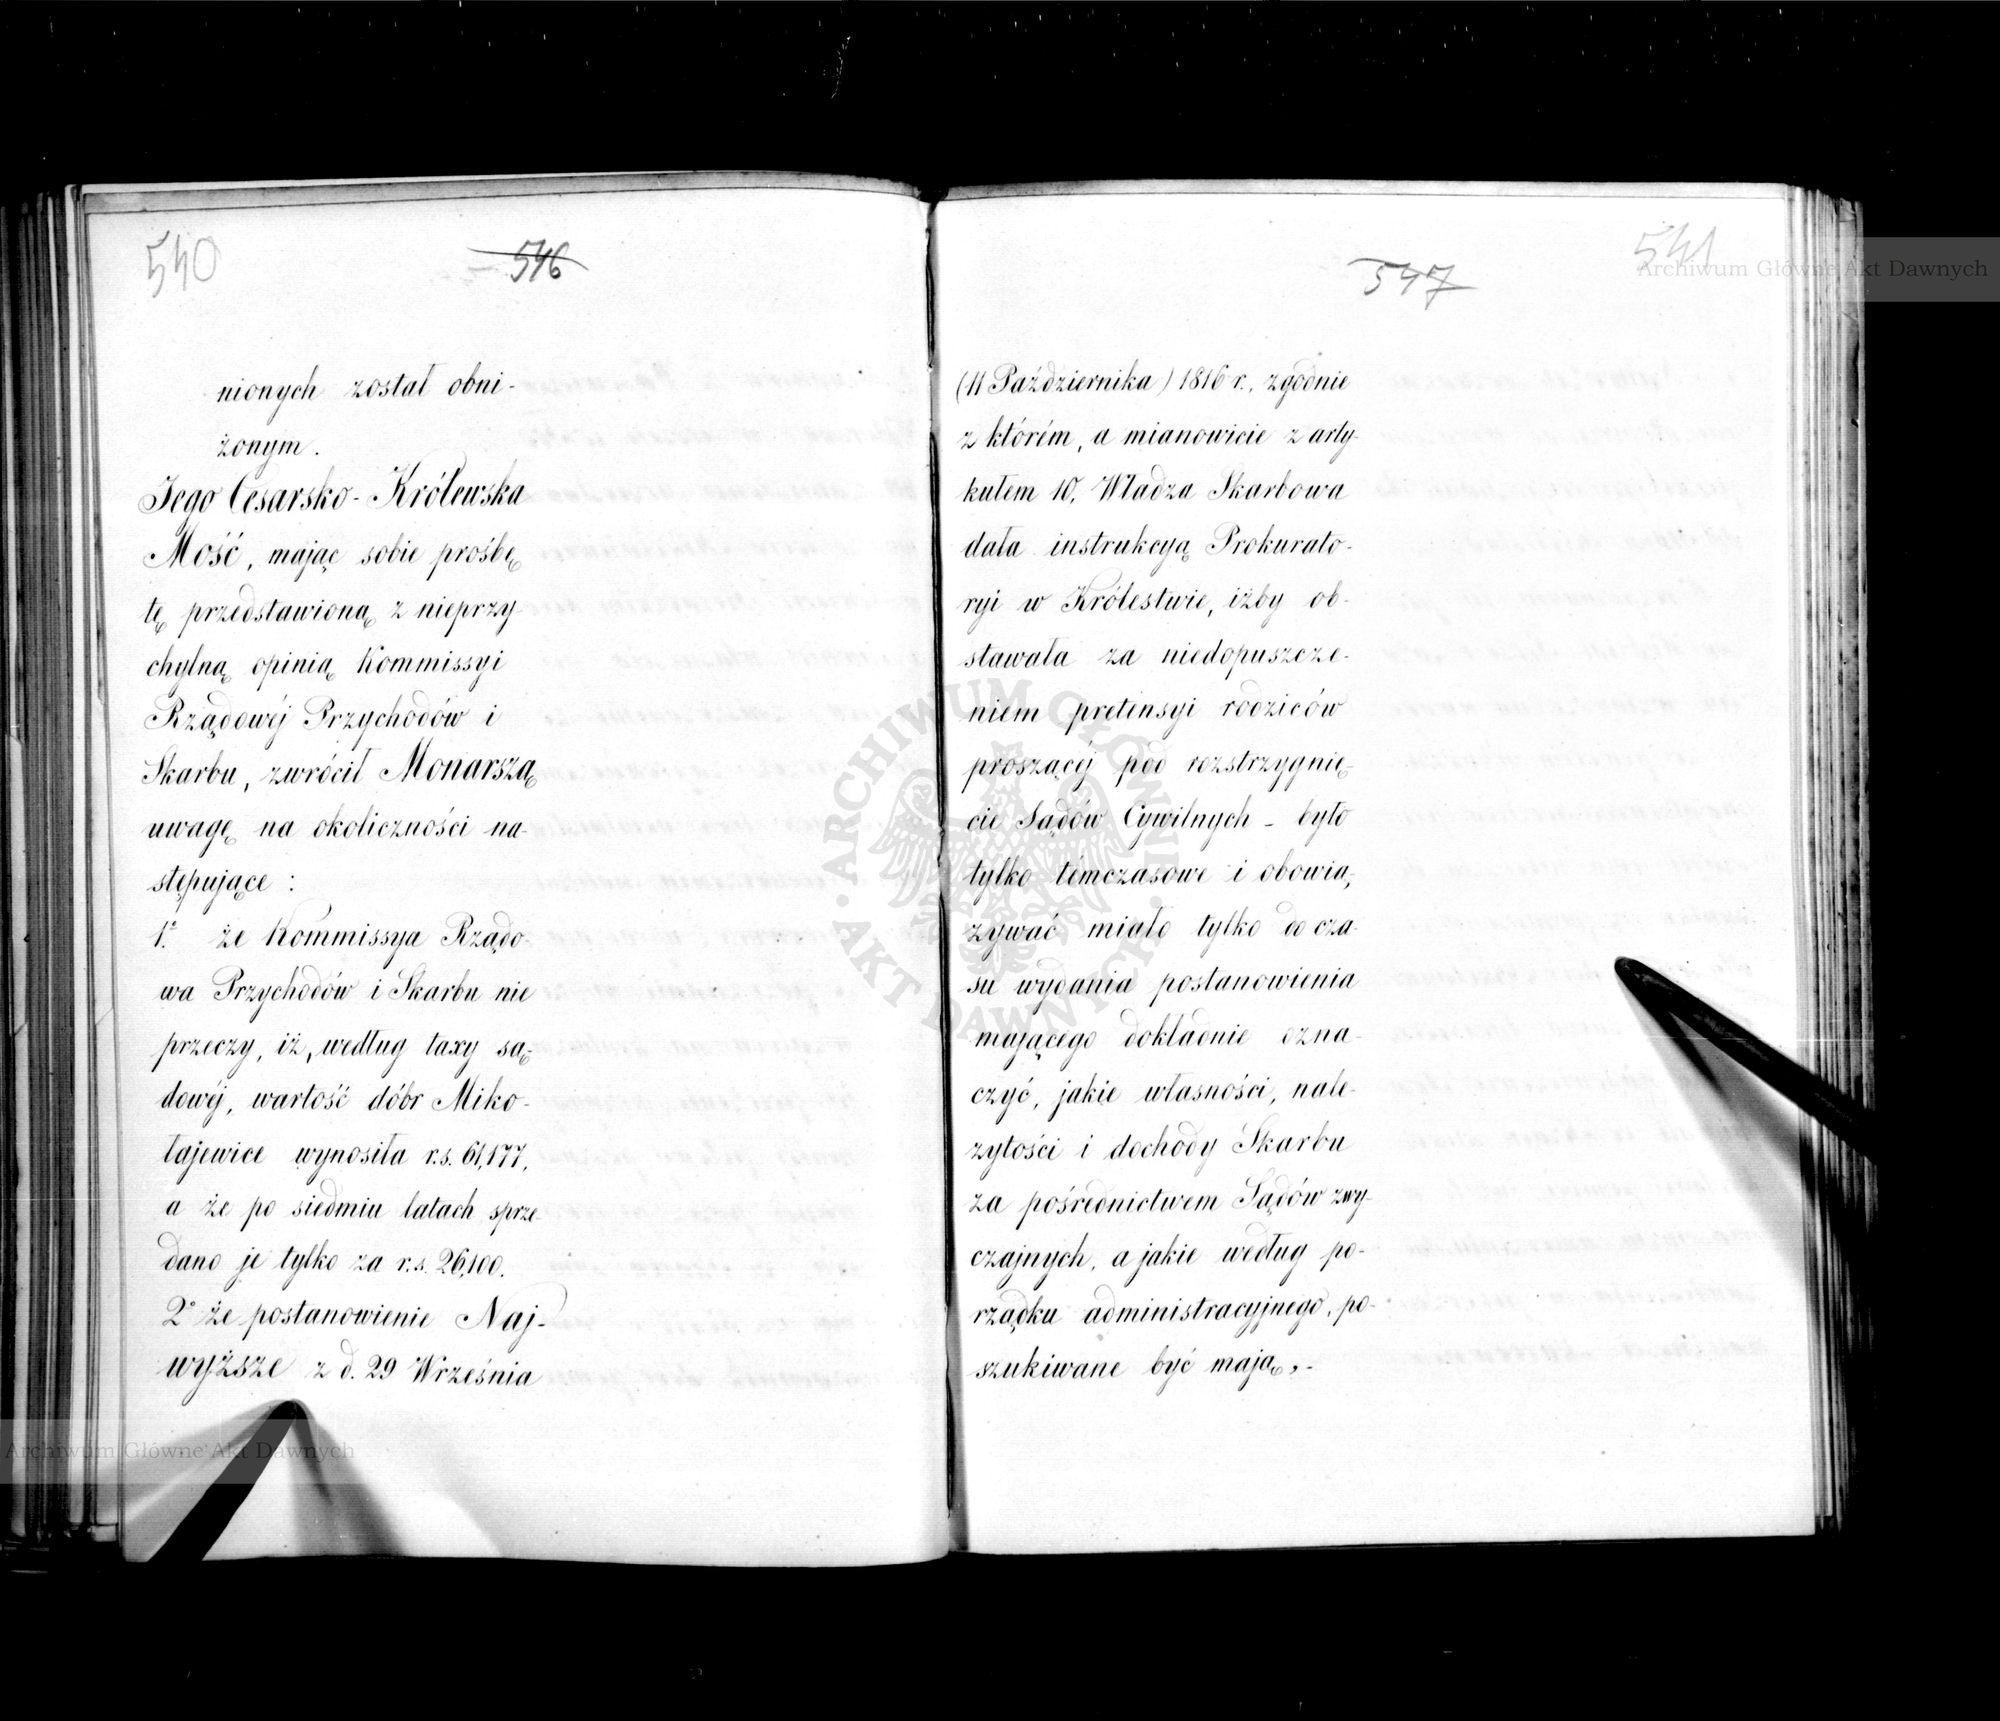 540
546
nionych został obni-
żonym.
Jego Cesarsko-Królewska
Mość, mając sobie prośbę
tę przedstawioną z nieprzy-
chylną opinią Kommissyi
Rządowéj Przychodów i
Skarbu, zwrócił Monarszą
uwagę na okoliczności na-
stępujące:
1.º że Kommissya Rządo-
wa Przychodów i Skarbu nie
przeczy, iż, według taxy są-
dowéj, wartość dóbr Miko-
łajewice wynosiła r.s. 61,177,
a że po siedmiu latach sprze-
dano je tylko za r.s. 26,100.
2º że postanowienie Naj-
wyższe z d. 29 Września
541
547
(11 Października) 1816 r., zgodnie
z którém, a mianowicie z arty-
kułem 10, Władza Skarbowa
dała instrukcyą Prokurato-
ryi w Królestwie, iżby ob-
stawała za niedopuszcze-
niem pretensyi rodziców
proszącéj pod rozstrzygnię-
cie Sądów Cywilnych - było
tylko témczasowe i obowią-
zywać miało tylko do cza-
su wydania postanowienia
mającego dokładnie ozna-
czyć, jakie własności, nale-
żytości i dochody Skarbu
za pośrednictwem Sądów zwy-
czajnych, a jakie według po-
rządku administracyjnego, po-
szukiwane być mają,-
Archiwum Główne Akt Dawnych
ARCHIWUM GŁÓWNE
AKT DAWNYCH
Archiwum Główne Akt Dawnych